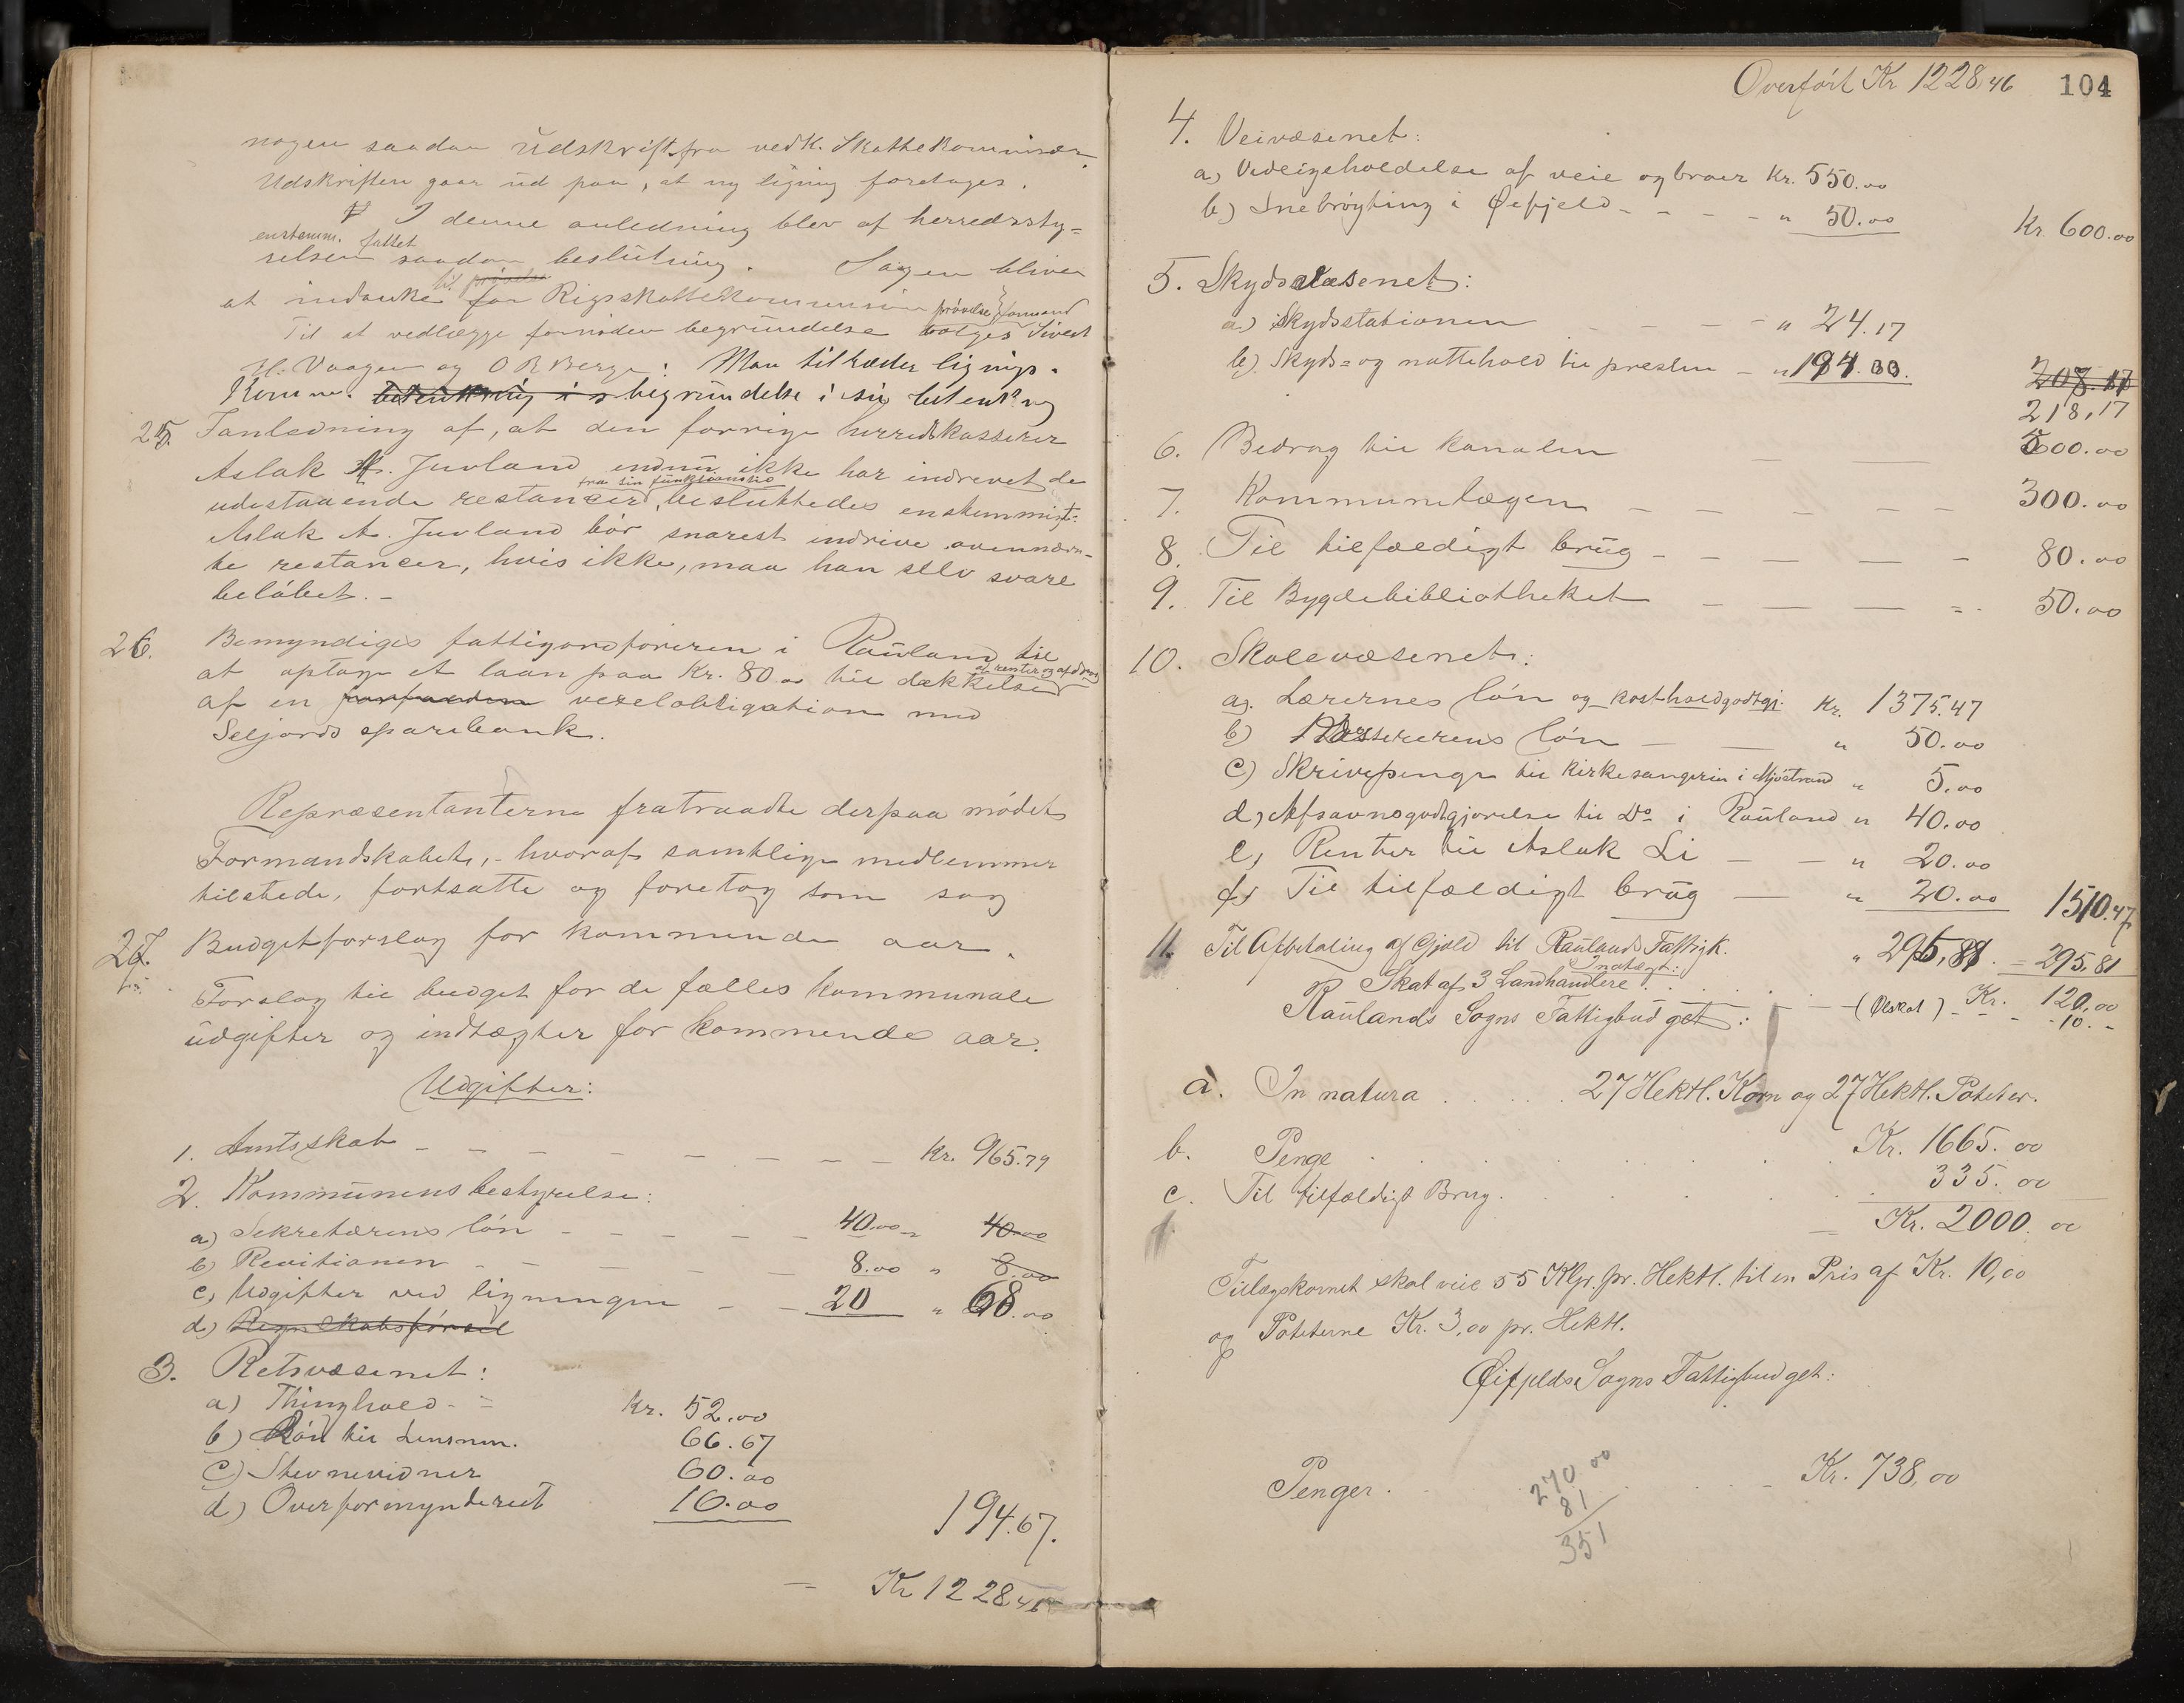 nogen saadan udskrift fra vedk. Skattekommissær.
Udskriften gaar ud paa, at ny ligning foretages.
I denne anledning blev af herredssty=
enstemm. fattet
relsen saadan beslutning. Sagen bliver
til prøvelse
at indanke for Rigsskattekommissionen prøvelse formand
Til at vedlægge fornøden begrundelse vælges Sivert
H. Vaagen og O R Berge. Man tiltræder lignings-
Komm. betenkning i s begrundelse i sin betenkning
25. Ianledning af, at den forrige herredskasserer
Aslak A. Juvland endnu ikke har indrevet de
fra sin funktionstid
udestaaende restancer, besluttedes enstemmigt:
Aslak A. Juvland bør snarest indrive ovennævn-
te restancer, hvis ikke, maa han selv svare
beløbet. -
26. Bemyndiges fattigordføreren i Rauland til
at optage et laan paa Kr. 80.00 til dækkelse
af renter og afdrag
af en forfalden vexelobligation med
Seljords sparebank.
Repræsentanterne fratraadte derpaa mødet
Formandskabet, - hvoraf samtlige medlemmer
tilstede, fortsatte og foretog som sag
27. Budgetforslag for kommende aar.
Forslag til budget for de fælles kommunale
udgifter og indtægter for kommende aar.
Udgifter:
1. Amtsskat - - - - - - - - Kr. 965.79
2. Kommunens bestyrelse:
a) Sekretærens løn - - - - - 40.00 " 40.00
b) Revitionen - - - - - 8.00 " 8.00
c) Udgifter ved ligningen - - 20 " 68.00
d) Regnskabsførsel
3. Retsvæsenet:
a) Thinghold - - Kr. 52.00
b) Løn til Lensmn. 66.67
c) Stevnevidner 60.00
d) Overformynderiet 16.00
194.67.
- Kr 1228.46
Overført Kr 1228,46 104
4. Veivæsenet:
a) Vedligeholdelse af veie og broer Kr. 550.00
b) Snebrøyting i Øifjeld - - - - " 50.00 Kr. 600.00
5. Skydsvæsenet:
a) Skydsstationen - - - - " 24.17
b) Skyds= og nattehold til presten - " 194.00. 208.17
218,17
6. Bedrag til kanalen - - 500.00
7. Kommunelægen - - - - - 300.00
8. Til tilfældigt brug - - - - 80.00
9. Til Bygdebibliotheket - - - = - 50.00
10. Skolevæsenet:
a). Lærernes løn og kostholdgodtgj. Kr. 1375.47
b) Kassererens løn - - " 50.00
c) Skrivepenge til kirkesangeren i Mjøstrand " 5.00
d) Afsavnsgodtgjørelse til Do i Rauland " 40.00
e) Renter til Aslak Li - - " 20.00
f) Til tilfældigt brug - " 20.00 1510.47
11. Til Afbetaling af Gjæld til Raulands Fattigk. " 295,81. = 295,81
Indtægt:
Skat af 3 Landhandlere . . . . . Kr. 120,00
Raulands Sogns Fattigbudget: - (Ølskat) - - - 10. -
a. In natura . . . . . 27 Hektl. Korn og 27 Hektl. Poteter.
b. Penge . . . . . . Kr. 1665.00
c. Til tilfældigt Brug. . . . . 335.00
= Kr. 2000.00
Tillægskornet skal veie 55 Klgr. pr. Hektl. til en Pris af Kr. 10,00
og Poteterne Kr. 3,00 pr. Hektl.
Øifjelds Sogns Fattigbudget:
Penger . . . . . Kr. 738,00
270.00
81
351